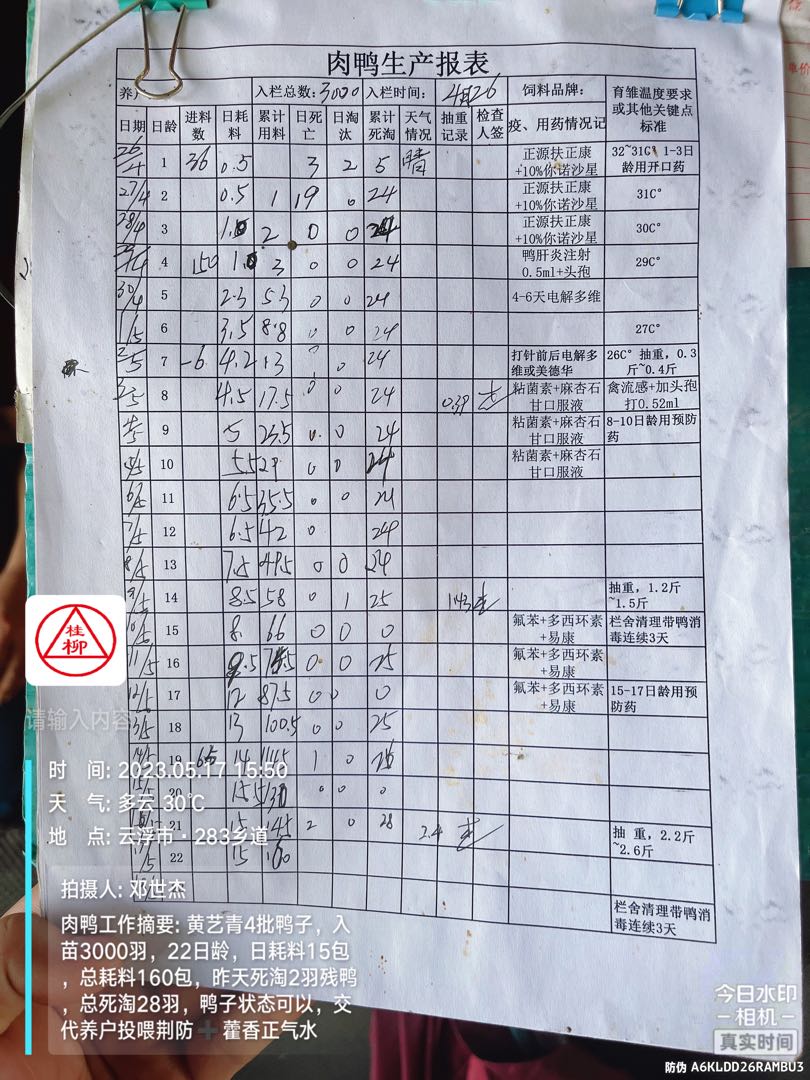 肉鸭生产报表
养户 入栏总数:3000 入栏时间: 4月26 饲料品牌: 育雏温度要求或其他关键点标准
日期 日龄 进料数 日耗料 累计用料 日死亡 日淘汰 累计死淘 天气情况 抽重记录 检查人签 疫、用药情况记
26/4 1 36 0.5 3 2 5 晴 正源扶正康+10%你诺沙星 32~31C° 1-3日龄用开口药
27/4 2 0.5 1 19 0 24 正源扶正康+10%你诺沙星 31C°
28/4 3 1.0 2 0 0 24 正源扶正康+10%你诺沙星 30C°
29/4 4 150 1.0 3 0 0 24 鸭肝炎注射0.5ml+头孢 29C°
30/4 5 2.3 5.3 0 0 24 4-6天电解多维
1/5 6 3.5 8.8 0 0 24 27C°
2/5 7 -6 4.2 13 0 24 打针前后电解多维或美德华 26C° 抽重,0.3斤~0.4斤
3/5 8 4.5 17.5 0 0 24 0.39 粘菌素+麻杏石甘口服液 禽流感+加头孢打0.52ml
9 5 0 0 24 粘菌素+麻杏石甘口服液 8-10日龄用预防药
10 5.5 29 0 0 24 粘菌素+麻杏石甘口服液
6/5 11 6.5 35.5 0 0 24
7/5 12 6.5 42 0 24
8/5 13 7.5 49.5 0 0 24
9/5 14 8.5 58 0 1 25 1.43 抽重,1.2斤~1.5斤
10/5 15 8 66 0 0 0 氟苯+多西环素+易康 栏舍清理带鸭消毒连续3天
11/5 16 0 0 25 氟苯+多西环素+易康
12/5 17 12 87.5 0 0 0 氟苯+多西环素+易康 15-17日龄用预防药
13/5 18 13 100.5 0 0 25
14/5 19 65 14 114.5 1 0 26
15/5 20 15.5 130 0 0 0
21 15 145 2 0 28 2.4 抽 重,2.2斤~2.6斤
22 15 160
栏舍清理带鸭消毒连续3天
桂柳
请输入内容
时 间: 2023.05.17 15:50
天 气: 多云 30℃
地 点: 云浮市·283乡道
拍摄人: 邓世杰
肉鸭工作摘要: 黄艺青4批鸭子，入
苗3000羽，22日龄，日耗料15包
，总耗料160包，昨天死淘2羽残鸭
，总死淘28羽，鸭子状态可以，交
代养户投喂荆防➕藿香正气水
今日水印
相机
真实时间
防伪 A6KLDD26RAMBU3